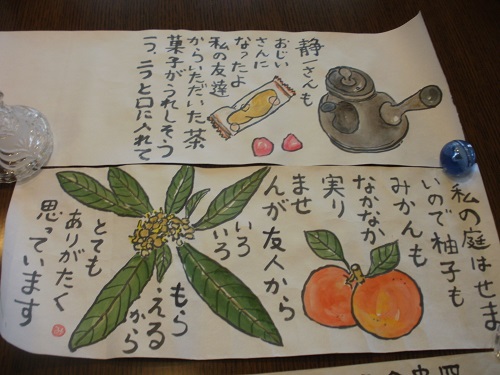 静一さんも
おじい
さんに
なったよ
私の友達
からいただいた茶
菓子がうれしそう
一つ、二つと口に入れて
私の庭はせま
いので柚子も
みかんも
なかなか
実り
ませ
んが友人から
いろ
いろ
もら
えるから
とても
ありがたく
思っています